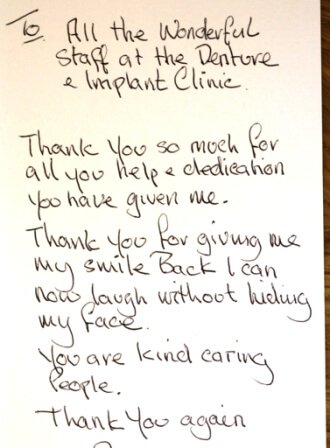 To All the Wonderful
Staff at the Denture
& Implant Clinic.
Thank You so much for
all you help & dedication
you have given me.
Thank You for giving me
my smile Back I can
now laugh without hiding
my face.
You are kind caring
People.
Thank You again